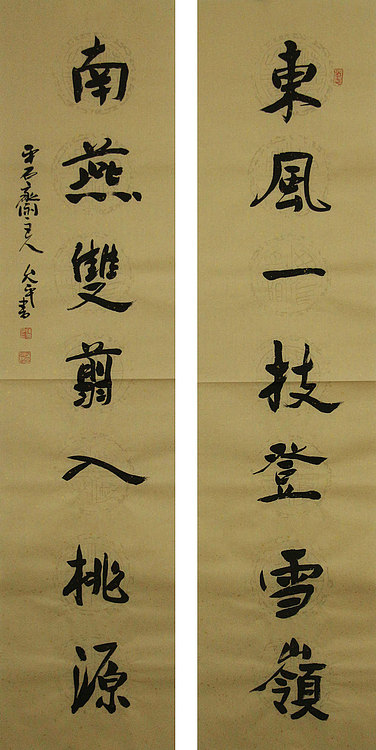 東風一技登雪嶺
南燕雙翦入桃源
齋主人 允平書